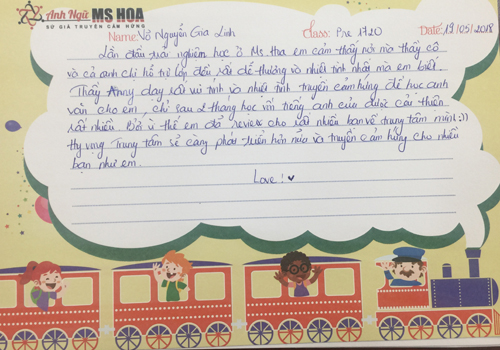 Anh Ngữ MS HOA
SỨ GIẢ TRUYỀN CẢM HỨNG
Name: Võ Nguyễn Gia Linh Class: Pre 1720 Date: 19/05/2018
Lần đầu trải nghiệm học ở Ms. Hoa em cảm thấy nơi mà thầy cô
và cả anh chị hỗ trợ lớp đều rất dễ thương và nhiệt tình nhất mà em biết.
Thầy Anny dạy rất vui tính và nhiệt tình truyền cảm hứng để học anh
văn cho em, chỉ sau 2 tháng học vốn tiếng anh của được cải thiện
rất nhiều. Bởi vì thế em đã review cho rất nhiều bạn về trung tâm mình :))
Hy vọng Trung tâm sẽ càng phát triển hơn nữa và truyền cảm hứng cho nhiều
bạn như em.
Love! ♥